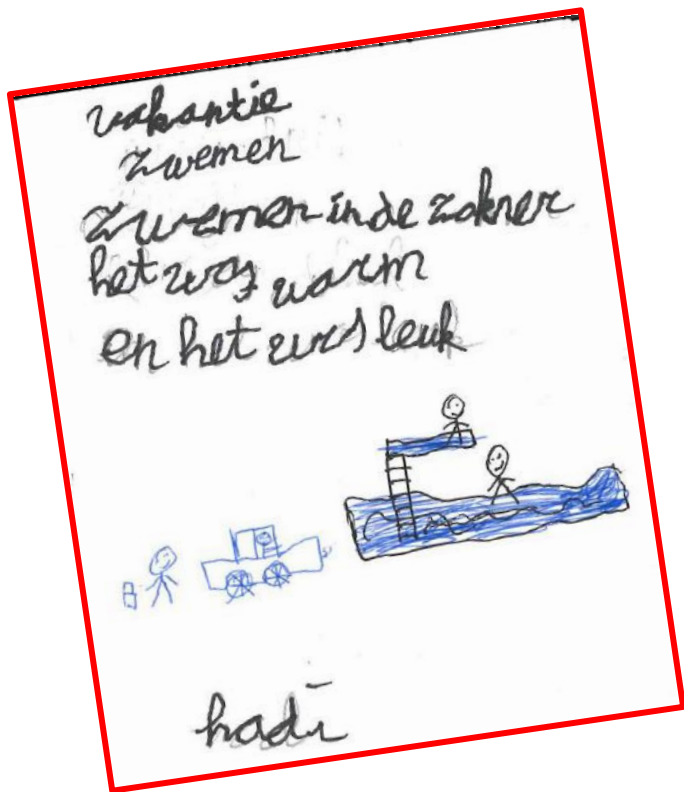 vakantie
zwemen
zwemen in de zokner
het was warm
en het was leuk
hadi